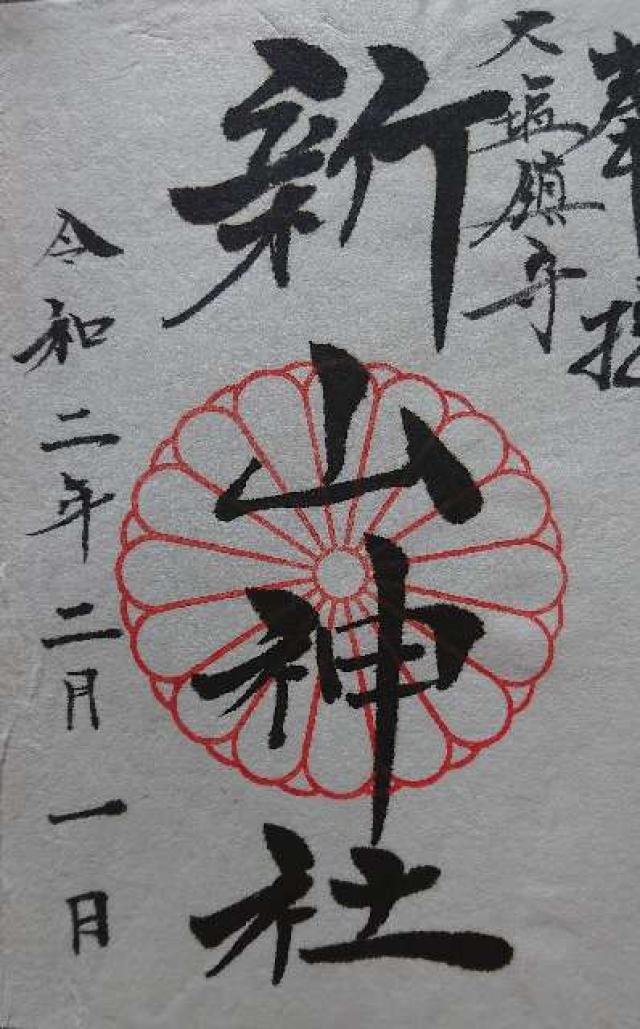 奉拝
大塩鎮守
新山神社
令和二年二月一日